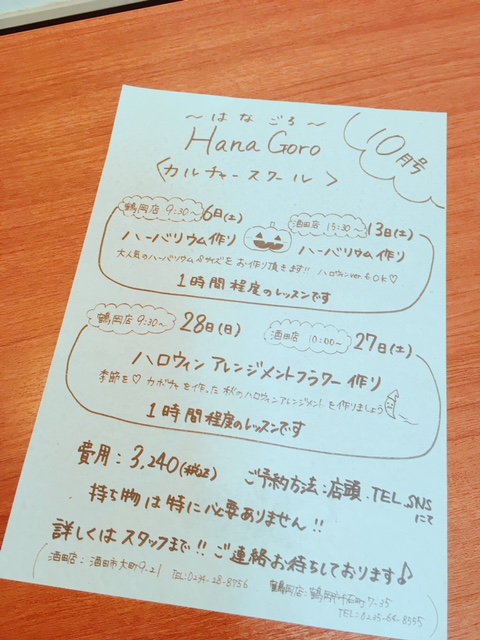 ～はなごろ～
Hana Goro
10月号
〈カルチャースクール〉
鶴岡店 9:30～ 6日(土)
ハーバリウム作り
酒田店 15:30～ 13日(土)
ハーバリウム作り
大人気のハーバリウム Sサイズをお作り頂きます!! ハロウィンver.もOK♡
1時間程度のレッスンです
鶴岡店 9:30～ 28日(日)
酒田店 10:00～ 27日(土)
ハロウィン アレンジメントフラワー作り
季節を♡ カボチャを作った秋のハロウィンアレンジメントを作りましょう
1時間程度のレッスンです
費用:3,240(税込)
ご予約方法:店頭.TEL.SNSにて
持ち物は特に必要ありません!!
詳しくはスタッフまで!! ご連絡お待ちしております♪
酒田店:酒田市大町9-21 TEL:0234-28-8756
鶴岡店:鶴岡市 7-35
TEL:0235-64-8555